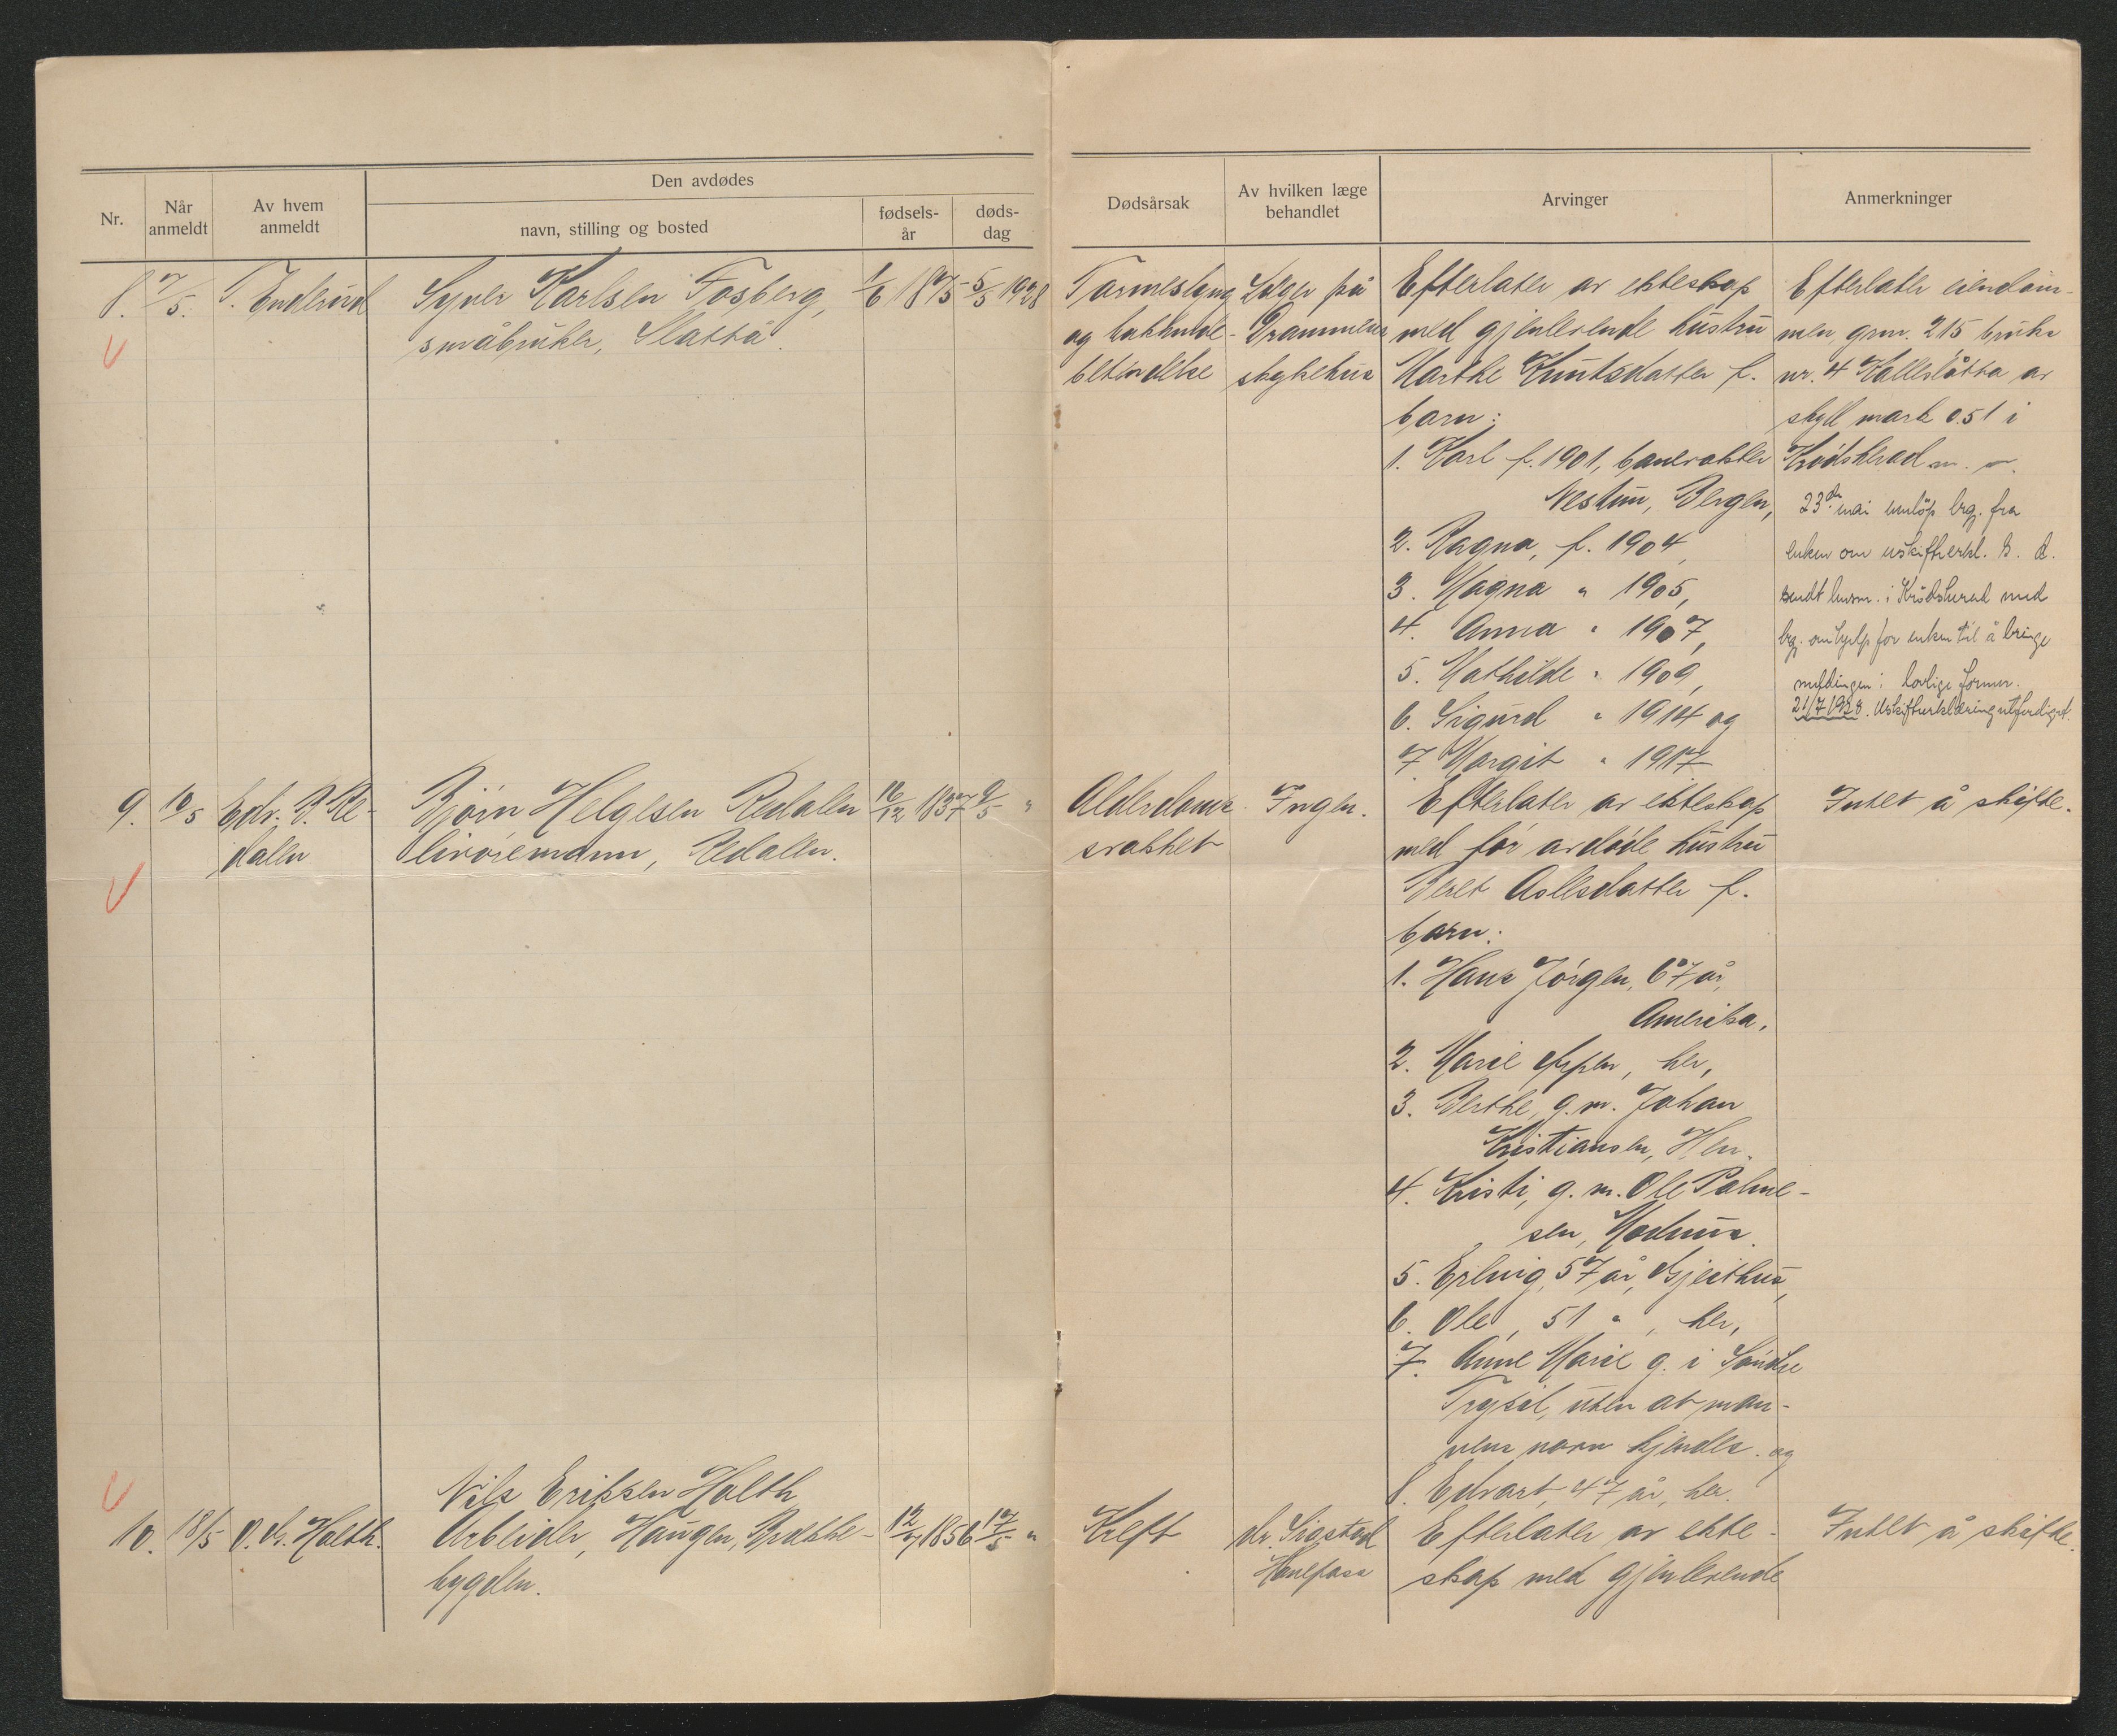 Den avdødes
Nr.
Når anmeldt
Av hvem anmeldt
navn, stilling og bosted
fødsels-år
døds-dag
Dødsårsak
Av hvilken læge behandlet
Arvinger
Anmerkninger
8. 7/5. T. Enderud
Syver Karlsen Fosberg,
småbruker, Slåtta.
1/6 1875 5/5 1928
Tarmeslyng
og bukhinde-
betendelse
Læger på
Drammens
sykehus
Efterlater av ekteskap
med gjenlevende hustru
Marthe Knutsdatter f.
barn:
1. Karl f. 1901, banevokter
Nestun, Bergen,
2. Ragna, f. 1904,
3. Magna " 1905,
4. Anna " 1907,
5. Mathilde " 1909,
6. Sigurd " 1914 og
7 Margit " 1917
Efterlater eiendom-
men grnr. 215 bruks
nr. 4 Kalleslåtta av
skyld mark 0.51 i
Krødsherad m. v.
23de mai innløp brg. fra
enken om uskifteerkl. S. d.
sendt lensm. i Krødsherad med
brg. om hjelp for enken til å bringe
meldingen i lovlige former.
21/7 1928. Uskifteerklæring utferdiget.
9. 10/5 Edv. B. Re-
dalen
Bjørn Helgesen Redalen
livøremann, Redalen.
16/12 1837 9/5 "
Alderdoms
svakhet
Ingen.
Efterlater av ekteskap
med før avdøde hustru
Beret Asllesdatter f.
barn:
1. Hans Jørgen, 67 år,
Amerika,
2. Marie, her,
3. Berthe, g. m. Johan
Kristiansen, Hen.
4. Kristi, g. m. Ole Palme-
sen, Modum.
5. Erling, 57 år, Gjeithus,
6. Ole, 51 ", her,
7. Anne Marie g. i Søndre
Trysil, uten at man-
nens navn kjendes. og
8. Edvart, 47 år, her.
Intet å skifte.
10. 18/5 O. N. Holth.
Nils Eriksen Holth
Arbeider, Haugen, Brække-
bygden.
12/7 1856 17/5 "
Kreft
dr. Sigstad
Hønefoss
Efterlater av ekte-
skap med gjenlevende
Intet å skifte.